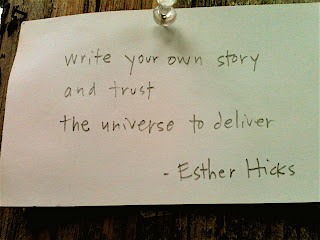 write your own story
and trust
the universe to deliver
- Esther Hicks